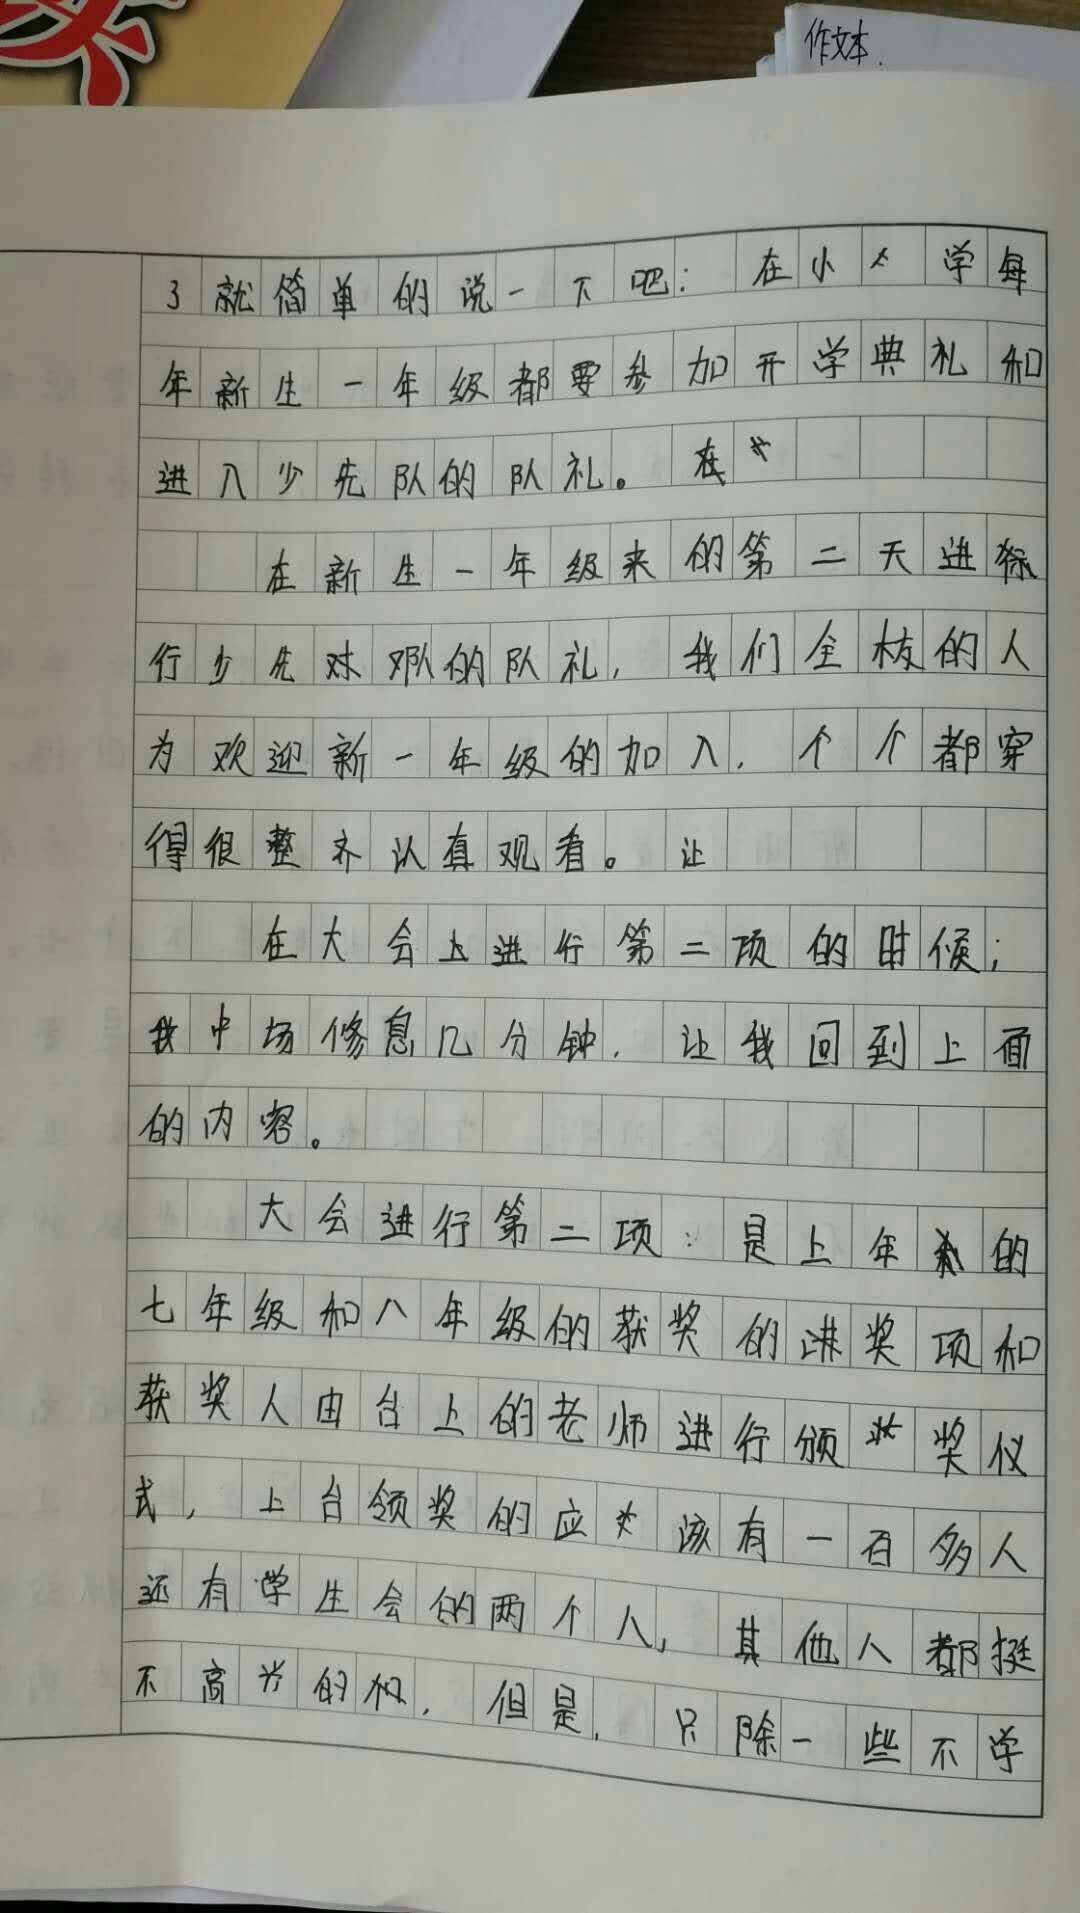 作文本.
了就简单的说一下吧：在小学每
年新生一年级都要参加开学典礼和
进入少先队的队礼。在
在新生一年级来的第二天进
行少先队的队礼，我们全校的人
为欢迎新一年级的加入，个个都穿
得很整齐认真观看。让
在大会上进行第二项的时候；
我中场修息几分钟，让我回到上面
的内容。
大会进行第二项：是上年的
七年级和八年级的获奖的讲奖项和
获奖人由台上的老师进行颁奖仪
式，上台领奖的应该有一百多人
还有学生会的两个人，其他人都挺
不高兴的，但是，只除一些不学